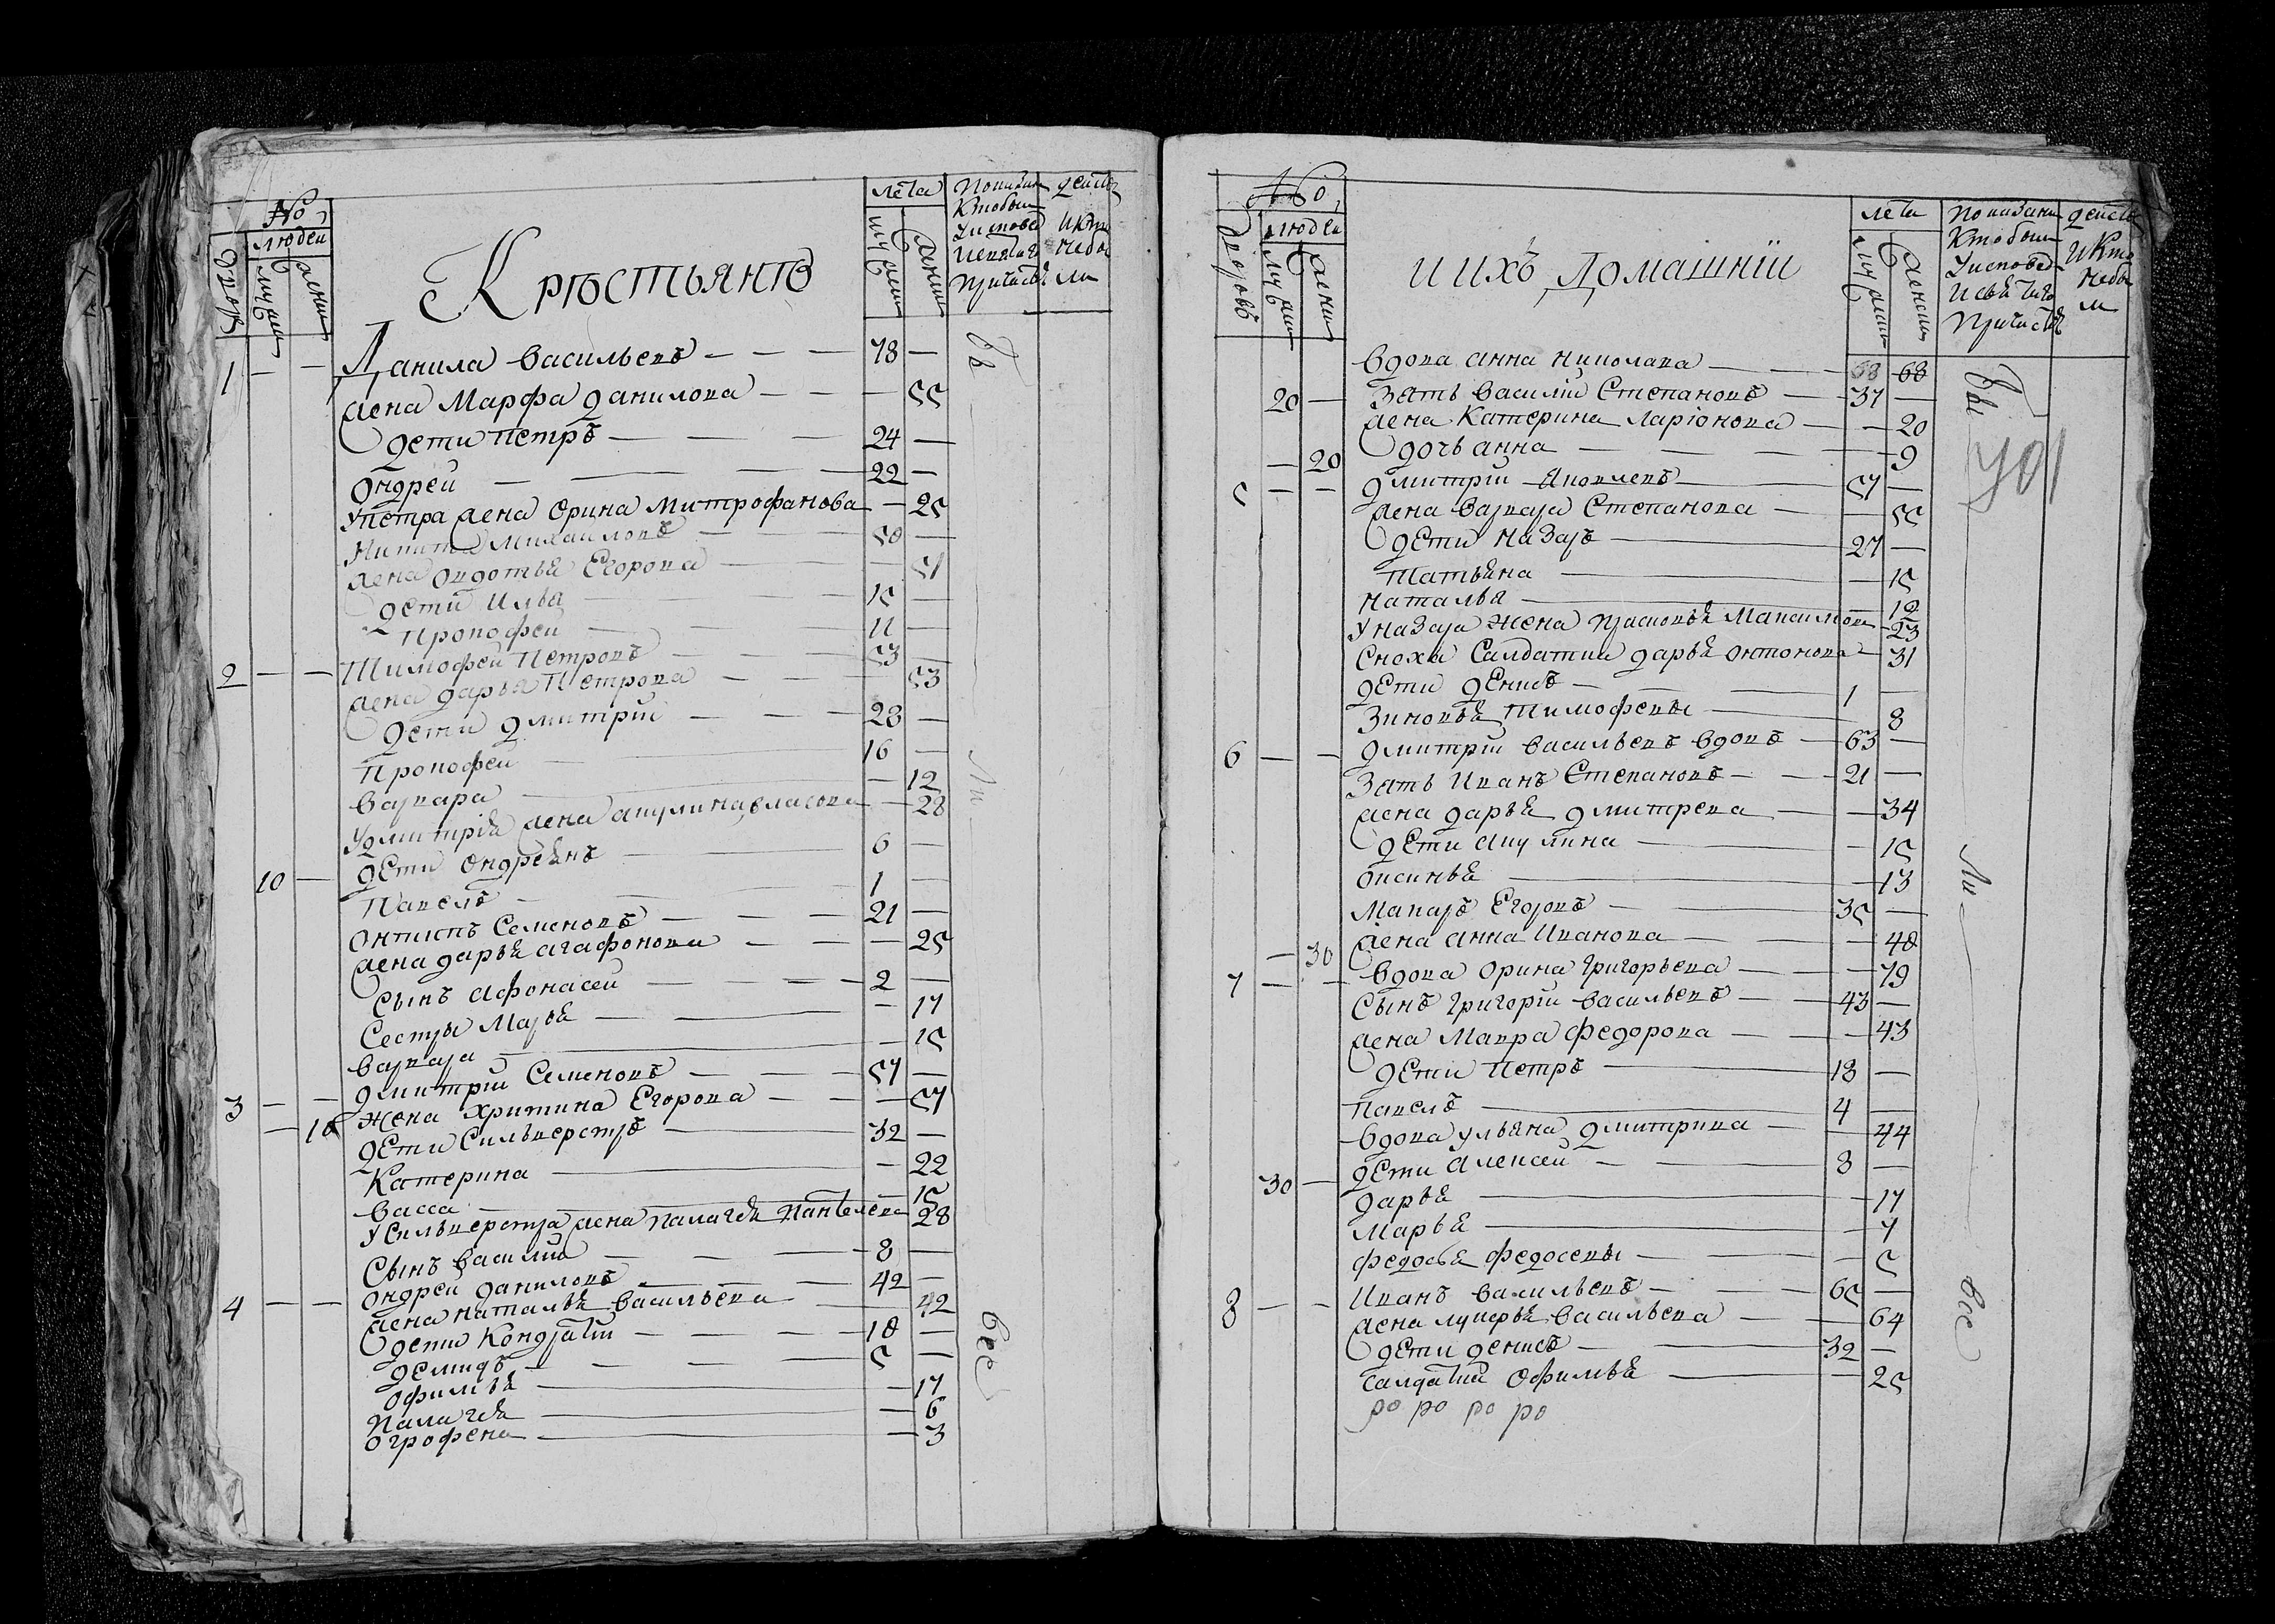 №
дворовъ
людей
мужеск
женск
Крѣстьянѣ
лета
мужеск
женск
Показан действ
Кто был И кто
Уисповед небы
Исвятаго ли
Причаст
1 — — Данила Васильевъ — — — 78 —
жена Марфа данилова — — — 55
дети Петръ — — — 24 —
Ондрей — — — 22 —
У петра жена Орина Митрофанова — 25
Никита Михаиловъ — — — 50 —
жена Овдотья Егорова — — — 51
дети Илья — — — 15 —
Прокофей — — — 11 —
2 — — Тимофей Петровъ — — — 53 —
жена дарья Петрова — — — 53
дети дмитрий — — — 23 —
Прокофей — — 16 —
Варвара — — 12
У дмитрия жена акулина власова — 28
10 — дети Ондреянъ — 6 —
Павелъ — — 1 —
Онтипъ Семеновъ — — — 21 —
жена дарья агафонова — — — 25
Сынъ Афонасей — — — 2 —
Сестры Марья — — — 17
Варвара — — 15
3 — — дмитрий Семеновъ — — — 57 —
— 10 жена Хритина Егорова — — — 57
дети Сильверстръ — 32 —
Катерина — — 22
Васса — — 15
У Сильверстра жена палагея Пантелева 28
Сынъ Василий — — — 8 —
4 — — Ондрей даниловъ — — — 42 —
жена наталья Васильева — 42
дети Кондратий — — — 18 —
демидъ — — — 5 —
Офимья — — 17
Палагея — — 6
Огрофена — — 3
бы
ли
все
№
дворовъ
людей
мужеск
женск
и ихъ домашнїи
лета
мужеск
женски
Показани действ
Кто были И Кто
Уисповед Небы
И святаго ли
Причаст
вдова анна николаева — — 68 68
20 — Зять Василий Степановъ — 37 —
жена Катерина Ларионова — — 20
— 20 дочь анна — — — 9
5 — — дмитрий Яковлевъ — 57 —
жена варвара Степанова — — 55
дети Назаръ — 27 —
Татьяна — — 15
Наталья — — 12
У назара жена прасковья Максимова — 23
Сноха Салдатка дарья онтонова — 31
дети денисъ — — 1 —
Зиновья Тимофевы — 8
6 — — дмитрий васильевъ вдовъ — 63 —
Зять Иванъ Степановъ — — 21 —
жена дарья дмитрева — — 34
дети акулина — — 15
Оксинья — — 13
Макаръ Егоровъ — — 35 —
— 30 жена анна Иванова — — — 40
7 — — вдова Орина григорьева — — — 79
Сынъ григорий васильевъ — — 43 —
жена Мавра федорова — — — 43
дети Петръ — 18 —
павелъ — 4 —
вдова ульяна дмитрива — — 44
30 — дети алексей — — 8 —
дарья — — 17
Марья — — 7
федосья федосевы — — — 5
8 — — Иванъ васильевъ — — — 65 —
жена лукерья васильева — — 64
дети денисъ — — 32 —
салдатка Офимья — — 25
ро ро ро ро
бы
ли
все
701